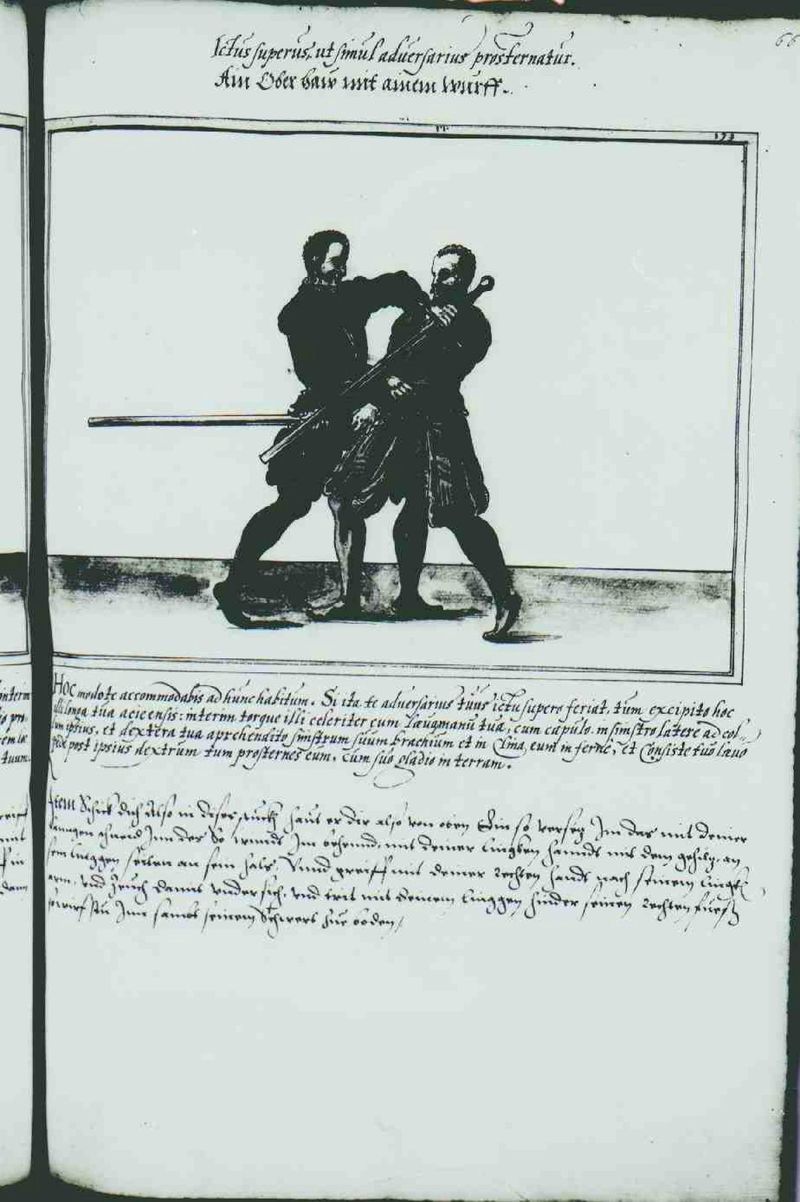 66
Ictus superus, ut simul adversarius prosternatur.
Ain Ober haw mit ainem wurff.
Hoc modo te accommodabis ad hunc habitum. Si ita te adversarius tuus ictu supero feriat, tum excipito hoc
illi longa tua acie ensis: interim torque illi celeriter cum laeva manu tua, cum capulo, in sinistro latere ad col-
lum ipsius, et dextera tua aprehendito sinistrum suum brachium et in Clina, eum inferne, et Consiste tuo laevo
pede post ipsius dextrum tum prosternes eum, cum suo gladio in terram.
Item Schick dich also in diser stuckh haut er dir also von oben Ein so versetz Im das mit deiner
lanngen schneid Inn des So windt Im behennd, mit deiner linggken hanndt mit dem gehiltz, an
sein linggen seiten an sein hals, Vnnd greiff mit deiner rechten handt nach seinem linggkh
arm, vnd zeuch damit vndersich, vnd trit mit deinem linggen hinder seinen rechten fuess
so wirfstu Inn sambt seinem Schwert zue boden,
interm
tuum.